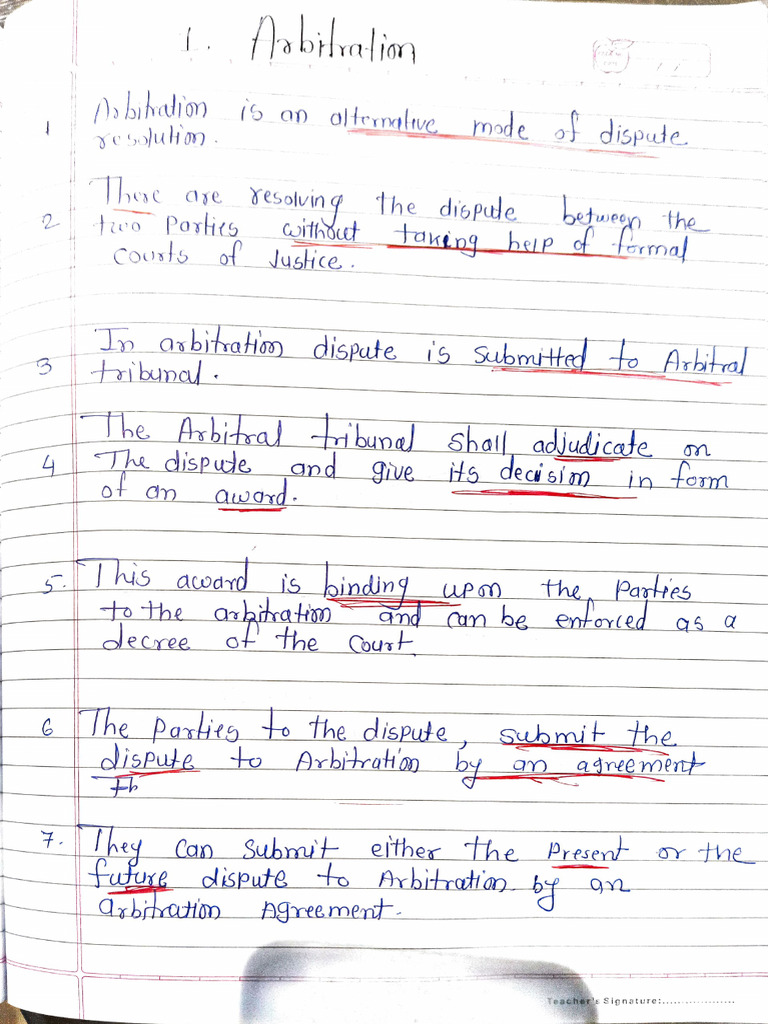 1. Arbitration
1 Arbitration is an alternative mode of dispute
resolution.
2 There are resolving the dispute between the
two Parties without taking help of formal
Courts of Justice.
3 In arbitration dispute is submitted to Arbitral
tribunal.
The Arbitral tribunal shall adjudicate on
4 The dispute and give its decision in form
of an award.
5. This award is binding upon the Parties
to the arbitration and can be enforced as a
decree of the Court
6 The Parties to the dispute, submit the
dispute to Arbitration by an agreement
Th
7. They can submit either the Present or the
future dispute to Arbitration by an
arbitration Agreement.
Teacher's Signature:...................